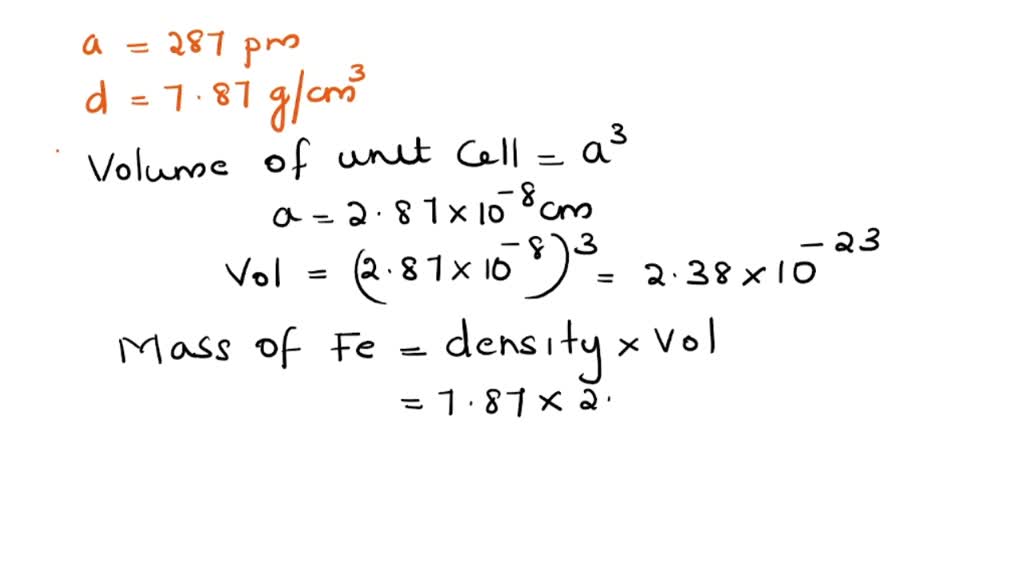 a = 287 pm
d = 7.87 g/cm³
Volume of unit Cell = a³
a = 2.87 × 10⁻⁸ cm
Vol = (2.87 × 10⁻⁸)³ = 2.38 × 10⁻²³
Mass of Fe = density × Vol
= 7.87 × 2.